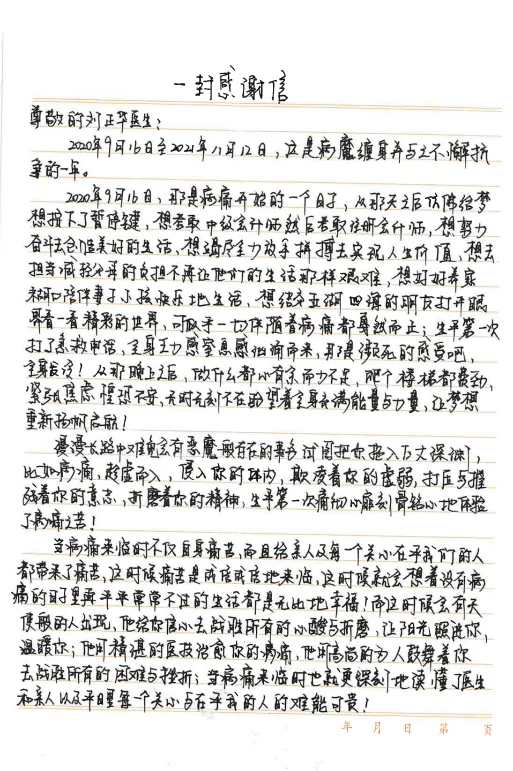 一封感谢信
尊敬的刘正华医生：
2020年9月16日至2021年11月12日，这是病魔缠身并与之不懈抗
争的一年。
2020年9月16日，那是病痛开始的一个日子，从那天之后仿佛给梦
想按下了暂停键，想考取中级会计师然后考取注册会计师，想努力
奋斗去创造美好的生活，想竭尽全力放手拼搏去实现人生价值，想去
担当减轻父母的负担不再让他们的生活那样艰难，想好好养家
糊口陪伴妻子小孩快乐地生活，想结交五湖四海的朋友打开眼
界看一看精彩的世界，可似乎一切伴随着病痛都戛然而止；生平第一次
打了急救电话，全身乏力感窒息感仿佛而来，那是濒死的感受吧，
全身发冷！从那晚上之后，做什么都心有余而力不足，爬个楼梯都费劲，
紧张焦虑惶恐不安，无时无刻不在盼望着全身充满能量与力量，让梦想
重新扬帆启航！
漫漫长路中难免会有恶魔般存在的事物试图把你拖入万丈深渊，
比如病痛，趁虚而入，侵入你的体内，欺凌着你的虚弱，打压与摧
残着你的意志，折磨着你的精神，生平第一次痛彻心扉刻骨铭心地体验
了病痛之苦！
当病痛来临时不仅自身痛苦，而且给亲人及每一个关心在乎我们的人
都带来了痛苦，这时候痛苦是成倍成倍地来临，这时候就会想着没有病
痛的时候哪怕平平常常不过的生活都是无比地幸福！而这时候会有天
使般的人出现，他给你信心去战胜所有的心酸与折磨，让阳光照进你，
温暖你；他用精湛的医技治愈你的病痛，他用高尚的为人鼓舞着你
去战胜所有的困难与挫折；当病痛来临时也就更深刻地读懂了医生
和亲人以及平日里每个关心与在乎我的人的难能可贵！
年 月 日 第 页